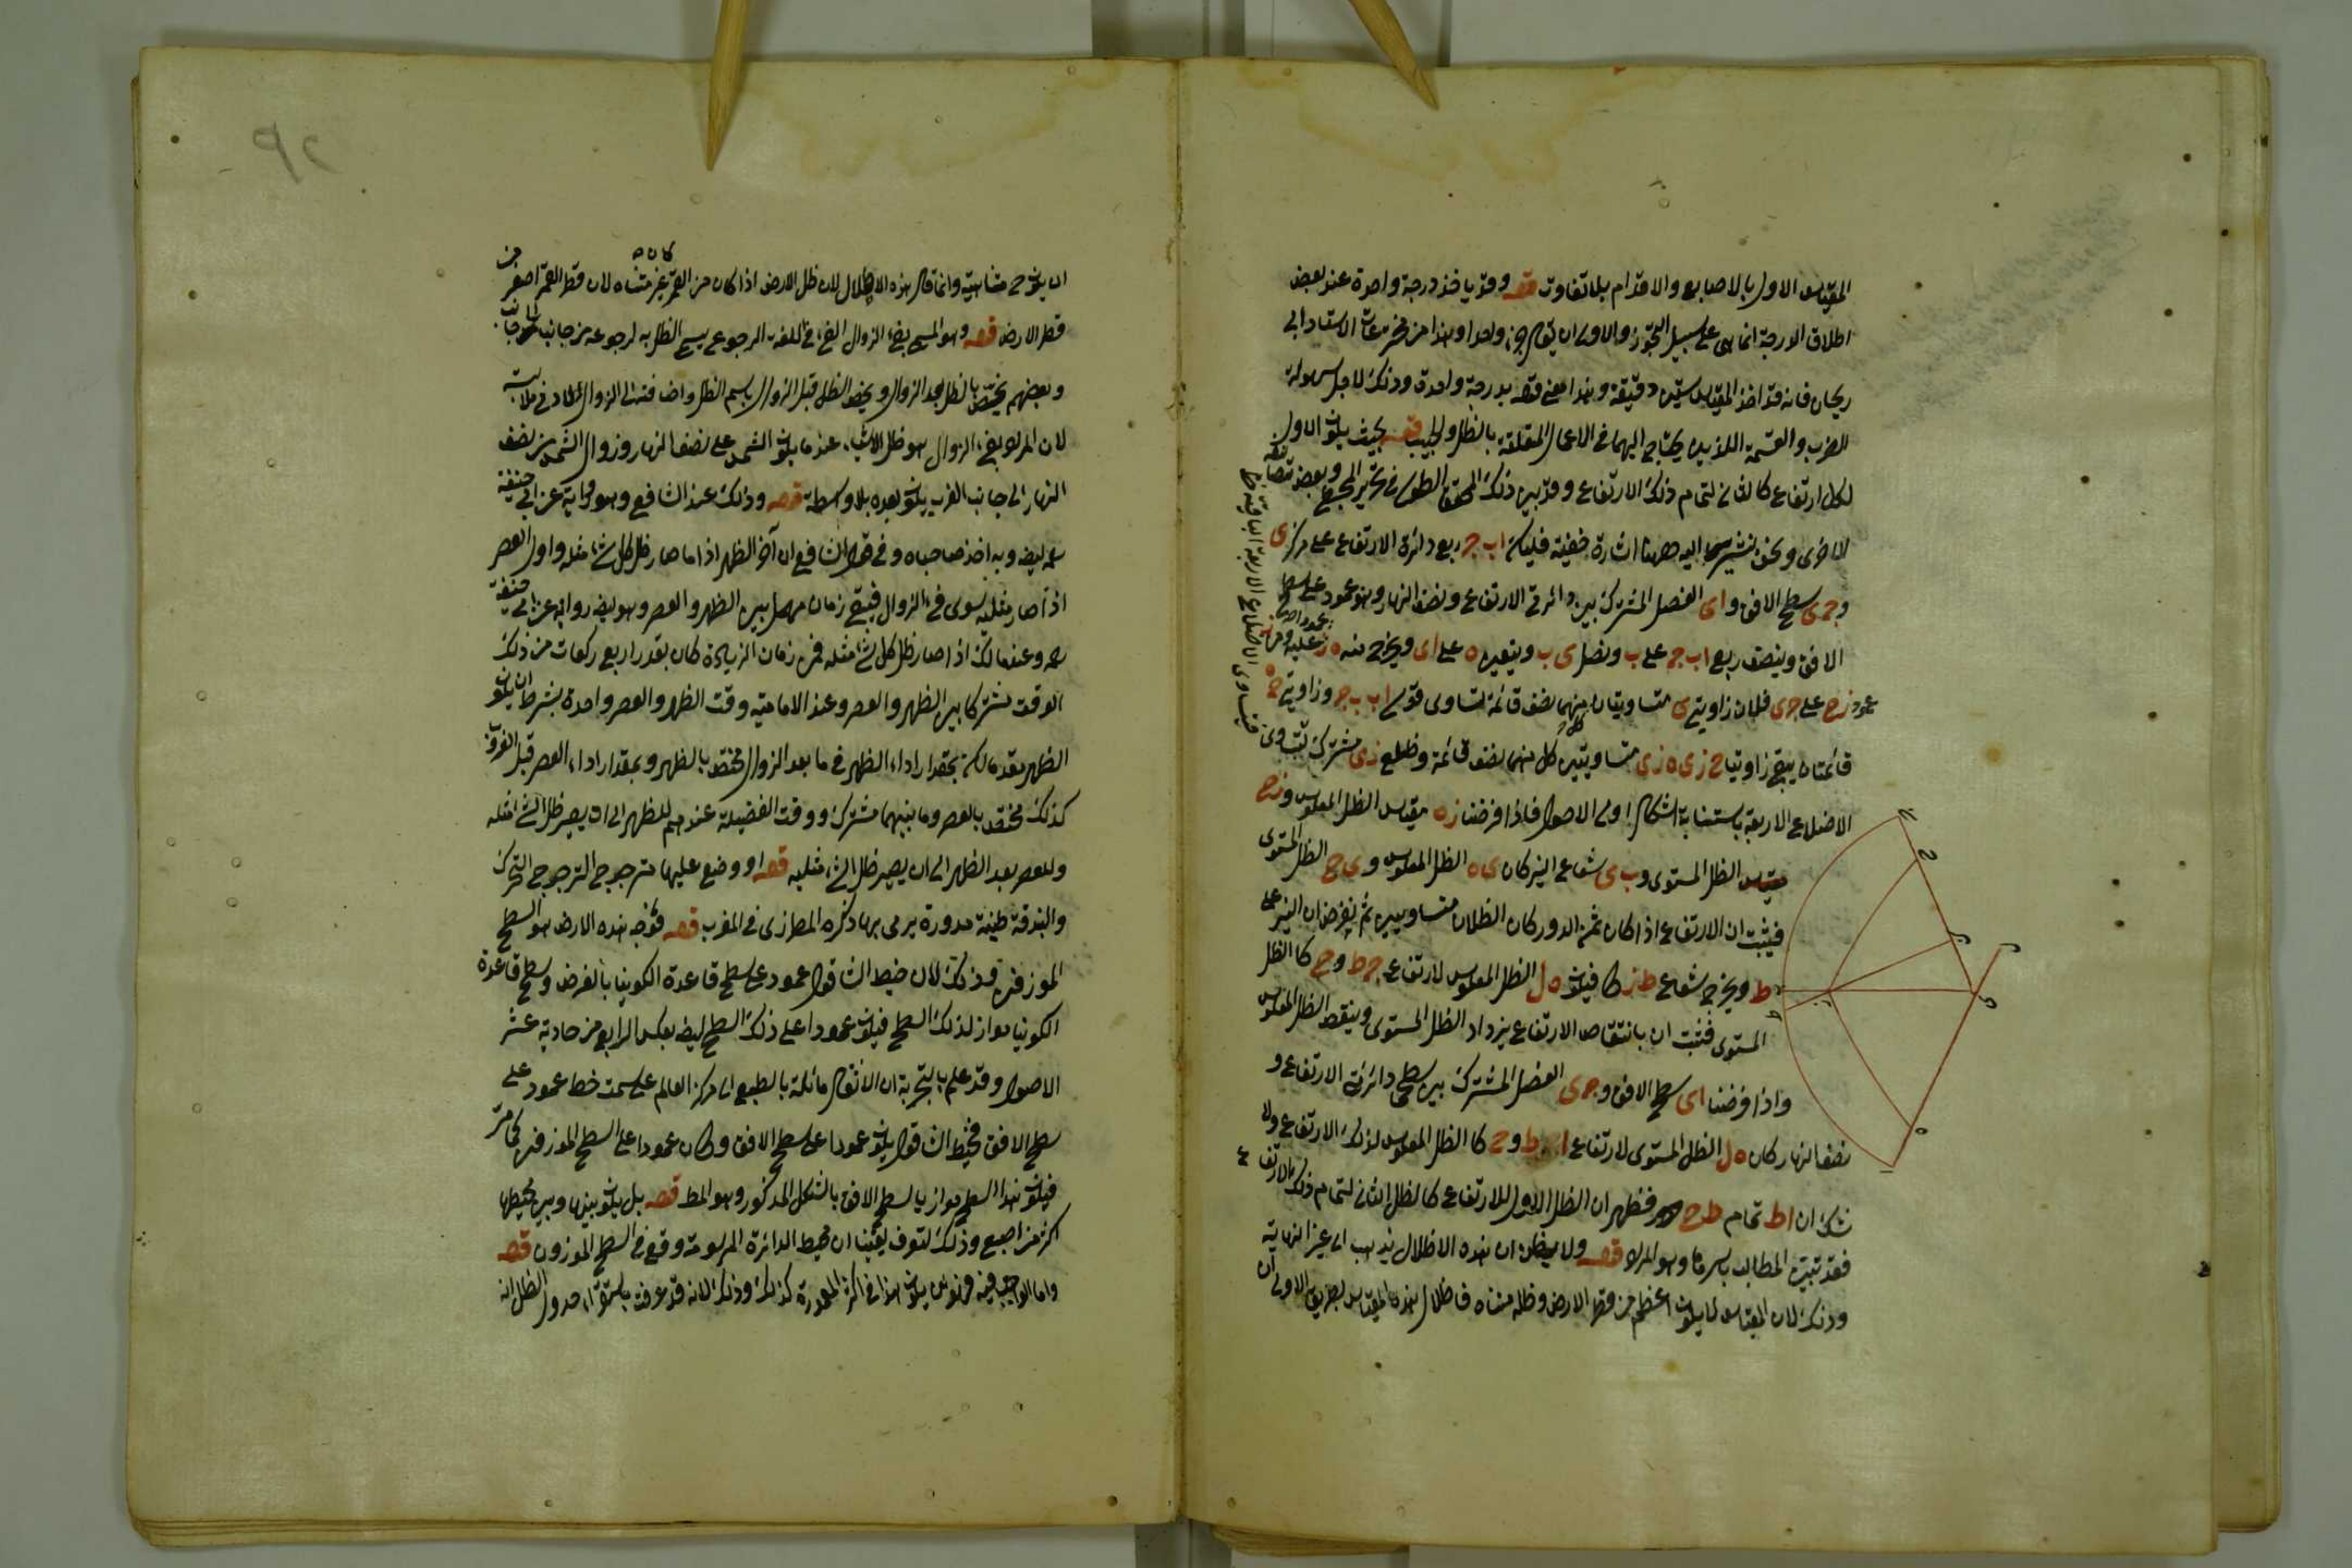 المقياس الاول بالاصابع والاقدام بلا تفاوت قوله وقد يا خذ درجة واحدة عند بعض
اطلاق الدرجة انما هى على سبيل التجوز والاولى ان يقول جزء واحدا وهذا من مخترعات الاستاد ابى
ريحان فانه قد اخذ المقياس ستين دقيقة وهذا معنى قوله بدرجة واحدة وذلك لاجل سهولة
الضرب والقسمة اللذين يحتاج اليهما فى الاعمال المتعلقة بالظل والجيب قوله بحيث يكون الاول
لكل ارتفاع كالثانى لتمام ذلك الارتفاع وقد بين ذلك المحقق الطوسى فى تحرير المجسطى وبعض تصانيفه
الاخرى ونحن نشير اليه ههنا اشارة خفيفة فليكن اب ج ربع دائرة الارتفاع على مركز ى
و ج ى سطح الافق و اى الفصل المشترك بين دائرتى الارتفاع ونصف النهار وهو عمود على سطح
الافق وينصف ربع اب ج على ب ونصل ى ب ونعين ه على اى ويخرج منه ه ز عليه
عمود زح على ج ى فلان زاويتى ى متساويتان كل منهما نصف قائمة لتساوى قوسى اب ب ج وزاويتى ح ه
قائمتان يبقى زاويتا ح ز ى ه ز ى متساويتين كل منهما نصف قائمة وضلع زى مشترك
الاضلاع الاربعة باستبانة اشكال اولى الاصول فاذا فرضنا ز ه مقياس الظل المعكوس و زح
مقياس الظل المستوى و ب ى شعاع النير كان ى ه الظل المعكوس و ى ح الظل المستوى
فيثبت ان الارتفاع اذا كان ثمن الدور كان الظلان متساويين ثم نفرض ان النير على
ط ويخرج شعاع ط ز ك فيكون ه ل الظل المعكوس لارتفاع ج ط و ح ك الظل
المستوى فثبت ان بانتقاص الارتفاع يزداد الظل المستوى وينقص الظل المعكوس
واذا فرضنا اى سطح الافق و ج ى الفصل المشترك بين سطحى دائرتى الارتفاع و
نصف النهار كان ه ل الظل المستوى لارتفاع ا ط و ح ك الظل المعكوس لذلك الارتفاع ولا
شك ان اط تمام ط ج فظهر ان الظل الاول للارتفاع كالظل الثانى لتمام ذلك الارتفاع
فقد تبين المطالب باسرها وهو المراد قوله ولا يظن ان هذه الاظلال يذهب الى غير النهاية
وذلك لان المقياس لا يكون اعظم من قطر الارض وظله متناه فاظلال هذه المقياس بطريق الاولى ان
ان يكون متناهية وانما قال هذه الاظلال لان ظل الارض اذا كان من القمر كان غير متناه لان قطر القمر اصغر من
قطر الارض قوله وهو المسمى بفىء الزوال الفىء فى اللغة الرجوع سمى الظل به لرجوعه من جانب الى جانب
وبعضهم يخص بالظل بعد الزوال ويخص الظل قبل الزوال باسم الظل واضافته الى الزوال لادنى ملابسة
لان المراد بفىء الزوال هو ظل الاشياء عند ما يكون الشمس على نصف النهار وزوال الشمس من نصف
النهار الى جانب الغرب يكون بعده بلا واسطة قوله وذلك عند الشافعى وهو رواية عن ابى حنيفة
رحمه ايضا وبه اخذ صاحباه وفى قول الشافعى ان آخر الظهر اذا ما صار ظل كل شىء مثله واول العصر
اذا صار مثليه سوى فىء الزوال فيبقى زمان مهمل بين الظهر والعصر وهو ايضا رواية عن ابى حنيفة
رحمه وعند مالك اذا صار ظل كل شىء مثله فمن زمان الزيادة كان بقدر اربع ركعات من ذلك
الوقت مشتركا بين الظهر والعصر وعند الامامية وقت الظهر والعصر واحدة بشرط ان يكون
الظهر مقدما لكن بمقدار اداء الظهر فى ما بعد الزوال مختص بالظهر وبمقدار اداء العصر قبل الغروب
كذلك مختص بالعصر وما بينهما مشترك ووقت الفضيلة عندهم للظهر الى ان يصير ظل الشىء مثله
وللعصر بعد الظهر الى ان يصير ظل الشىء مثليه قوله او وضع عليها مترجرج الترجرج التحرك
والبندقة طينة مدورة يرمى بها ذكره المطرزى فى المغرب قوله فوجه هذه الارض هو السطح
الموزون وذلك لان خيط الشاقول عمود على سطح قاعدة الكونيا بالفرض وسطح قاعدة
الكونيا مواز لذلك السطح فيكون عمودا على ذلك السطح ايضا بعكس الرابع من حادية عشر
الاصول وقد علم بالتجربة ان الاثقال مائلة بالطبع الى مركز العالم على سمت خط عمود على
سطح الافق فخيط الشاقول يكون عمودا على سطح الافق وكان عمودا على السطح الموزون كما مر
فيكون هذا السطح موازيا لسطح الافق بالشكل المذكور وهو المط قوله بل يكون بينها وبين محيطها
اكثر من اصبع وذلك لتعرف يقينا ان محيط الدائرة المرسومة وقع فى السطح الموزون قوله
كذلك وذلك لانه قد عرفت باستقراء جدول الظل انه